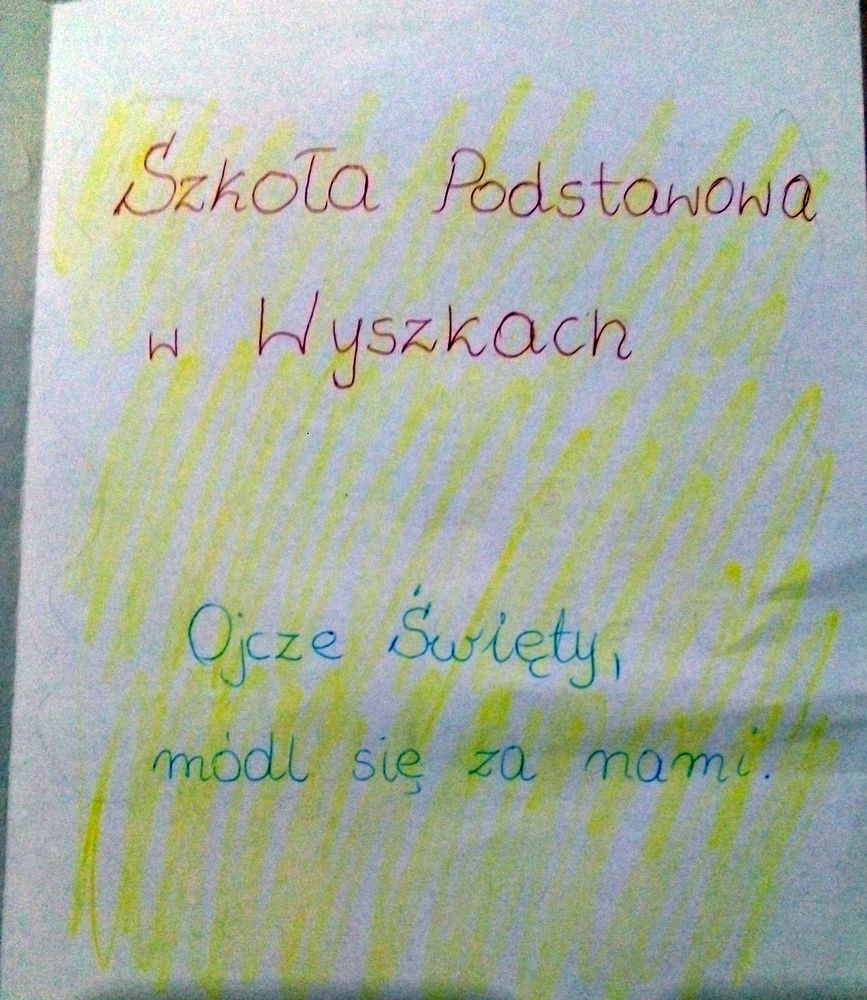 Szkoła Podstawowa
w Wyszkach
Ojcze Święty,
módl się za nami.